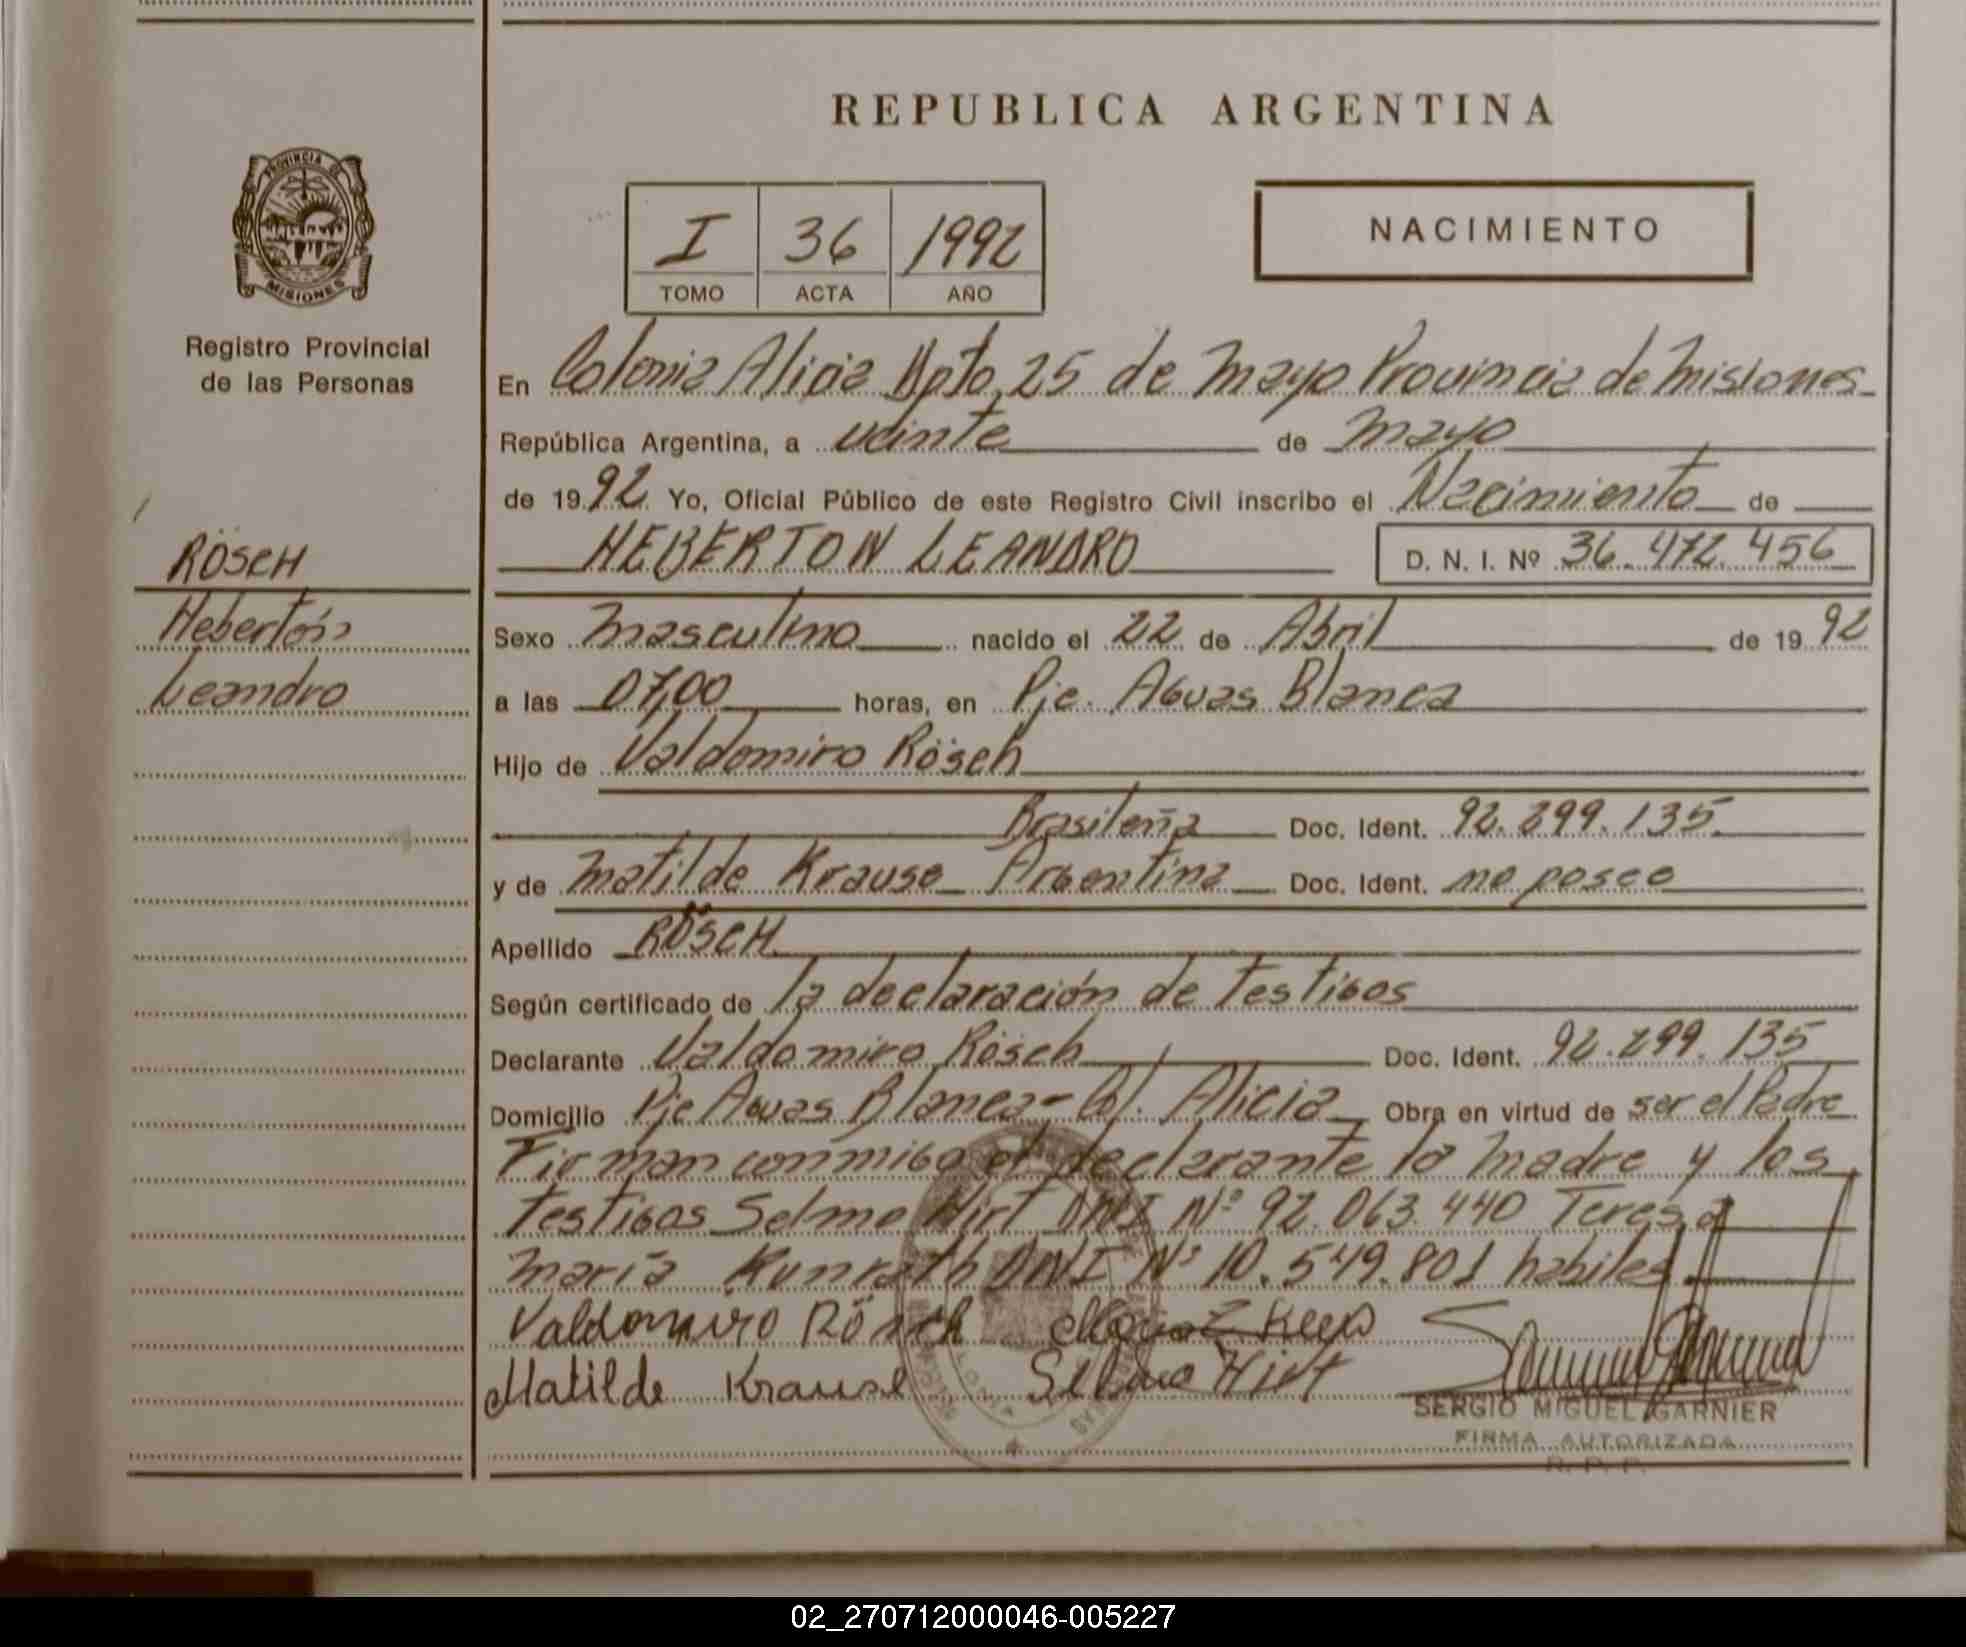 REPUBLICA ARGENTINA
PROVINCIA DE
MISIONES
Registro Provincial
de las Personas
I 36 1992
TOMO ACTA AÑO
NACIMIENTO
En Colonia Alicia Dpto. 25 de Mayo Provincia de Misiones
República Argentina, a veinte de Mayo
de 1992 Yo, Oficial Público de este Registro Civil inscribo el Nacimiento de
HEBERTON LEANDRO D. N. I. Nº 36.472.456
RÖSCH
Hebertón
Leandro
Sexo Masculino nacido el 22 de Abril de 1992
a las 07,00 horas, en Pje. Aguas Blanca
Hijo de Valdomiro Rösch
Brasileña Doc. Ident. 92.299.135
y de Matilde Krause Argentina Doc. Ident. no posee
Apellido RÖSCH
Según certificado de la declaración de testigos
Declarante Valdomiro Rösch Doc. Ident. 92.299.135
Domicilio Pje Aguas Blanca - Col. Alicia Obra en virtud de ser el Padre
Firman conmigo el declarante la madre y los
testigos Selma Hirt DNI Nº 92.063.440 Teresa
María Kunrath DNI Nº 10.549.801 habiles
Valdomiro Rösch
Matilde Krause Selma Hirt
SERGIO MIGUEL GARNIER
FIRMA AUTORIZADA
R. P. P.
02_270712000046-005227